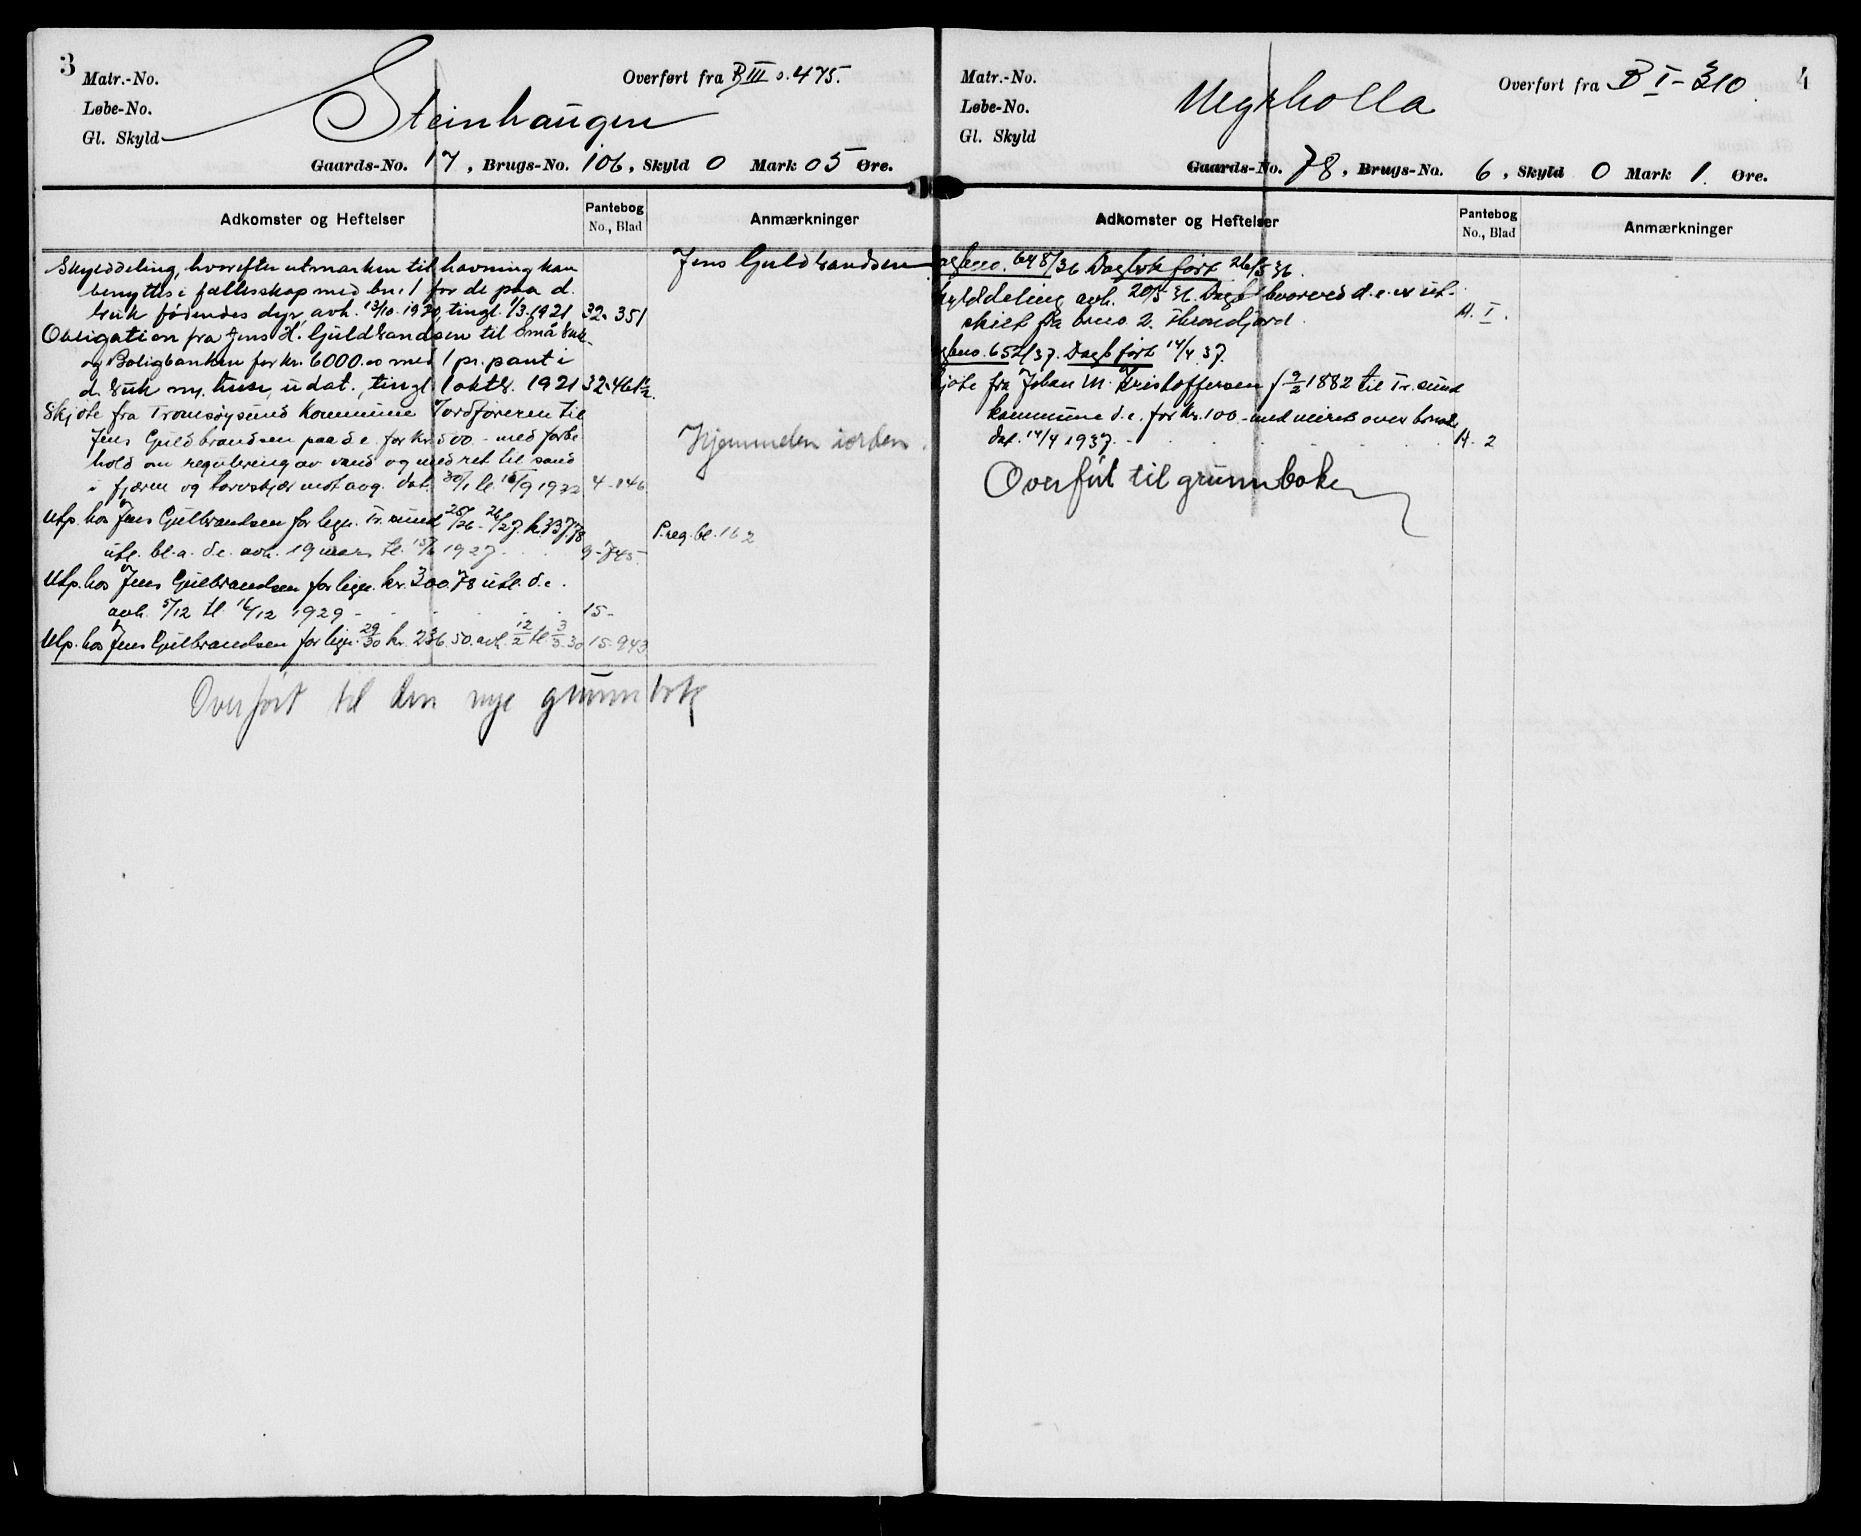 3
Matr.-No.
Løbe-No.
Gl. Skyld
Overført fra B III s. 475.
Steinhaugen
Gaards-No. 17, Brugs-No. 106, Skyld 0 Mark 05 Øre.
Adkomster og Heftelser
Pantebog No., Blad
Anmærkninger
Skylddeling, hvorefter utmarken til havning kan
benyttes i fællesskap med bn. 1 for de paa d.
bruk fødendes dyr, avh. 13/10. 1920, tingl. 1/3. 1921 32-351
Jens Guldbrandsen
Obligation fra Jens H. Guldbrandsen til Småbruk-
og Boligbanken for kr. 6000.00 med 1 pr. pant i
d. bruk m. huse, udat., tingl. 1 oktbr. 1921 32-461
Skjøte fra Tromsøysund Kommune v/ordføreren til
Jens Guldbrandsen paa d.e. for kr. 500.- med forbe
hold om regulering av vand og med ret til sand
i fjæren og torvskjær mot avg. dat. 30/1 tl. 16/9 1922 4-146
Hjemmelen iorden.
Utp. hos Jens Gulbrandsen for lign. Tr.sund 25/26 - 26/27. kr. 337.78
utl. bl.a. d.e. avh. 19 mars tl. 15/6 1927 9-745
P.reg. bl. 162
Utp. hos Jens Gulbrandsen for lign. kr. 300.78 utl. d.e.
avh. 5/12 tl. 16/12 1929 - 15-
Utp. hos Jens Gulbrandsen for lign. 29/30 kr. 236.50. avh. 12/2 tl. 3/3-30 15-943
Overført til den nye grunnbok
4
Matr.-No.
Løbe-No.
Gl. Skyld
Overført fra B I - 310
Megrholla
Gaards-No. 78, Brugs-No. 6, Skyld 0 Mark 1. Øre.
Adkomster og Heftelser
Pantebog No., Blad
Anmærkninger
agbno. 648/36 Dagbok ført 26/5 36.
kylddeling avh. 20/5 36. hvorved d.e. er ut-
skilt fra bno. 2. A. I.
agbno. 652/37. Dagb. ført 14/4 37.
kjøte fra Johan M. Kristoffersen f. 9/2 1882 til Tr.sund
kommune d.e. for kr. 100.- med
dat. 14/4 1937. - A. 2
Overført til grunnboken